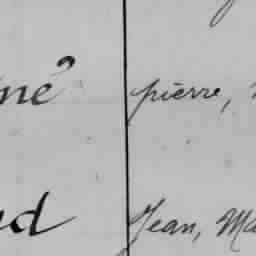 né pierre,
d Jean, Ma